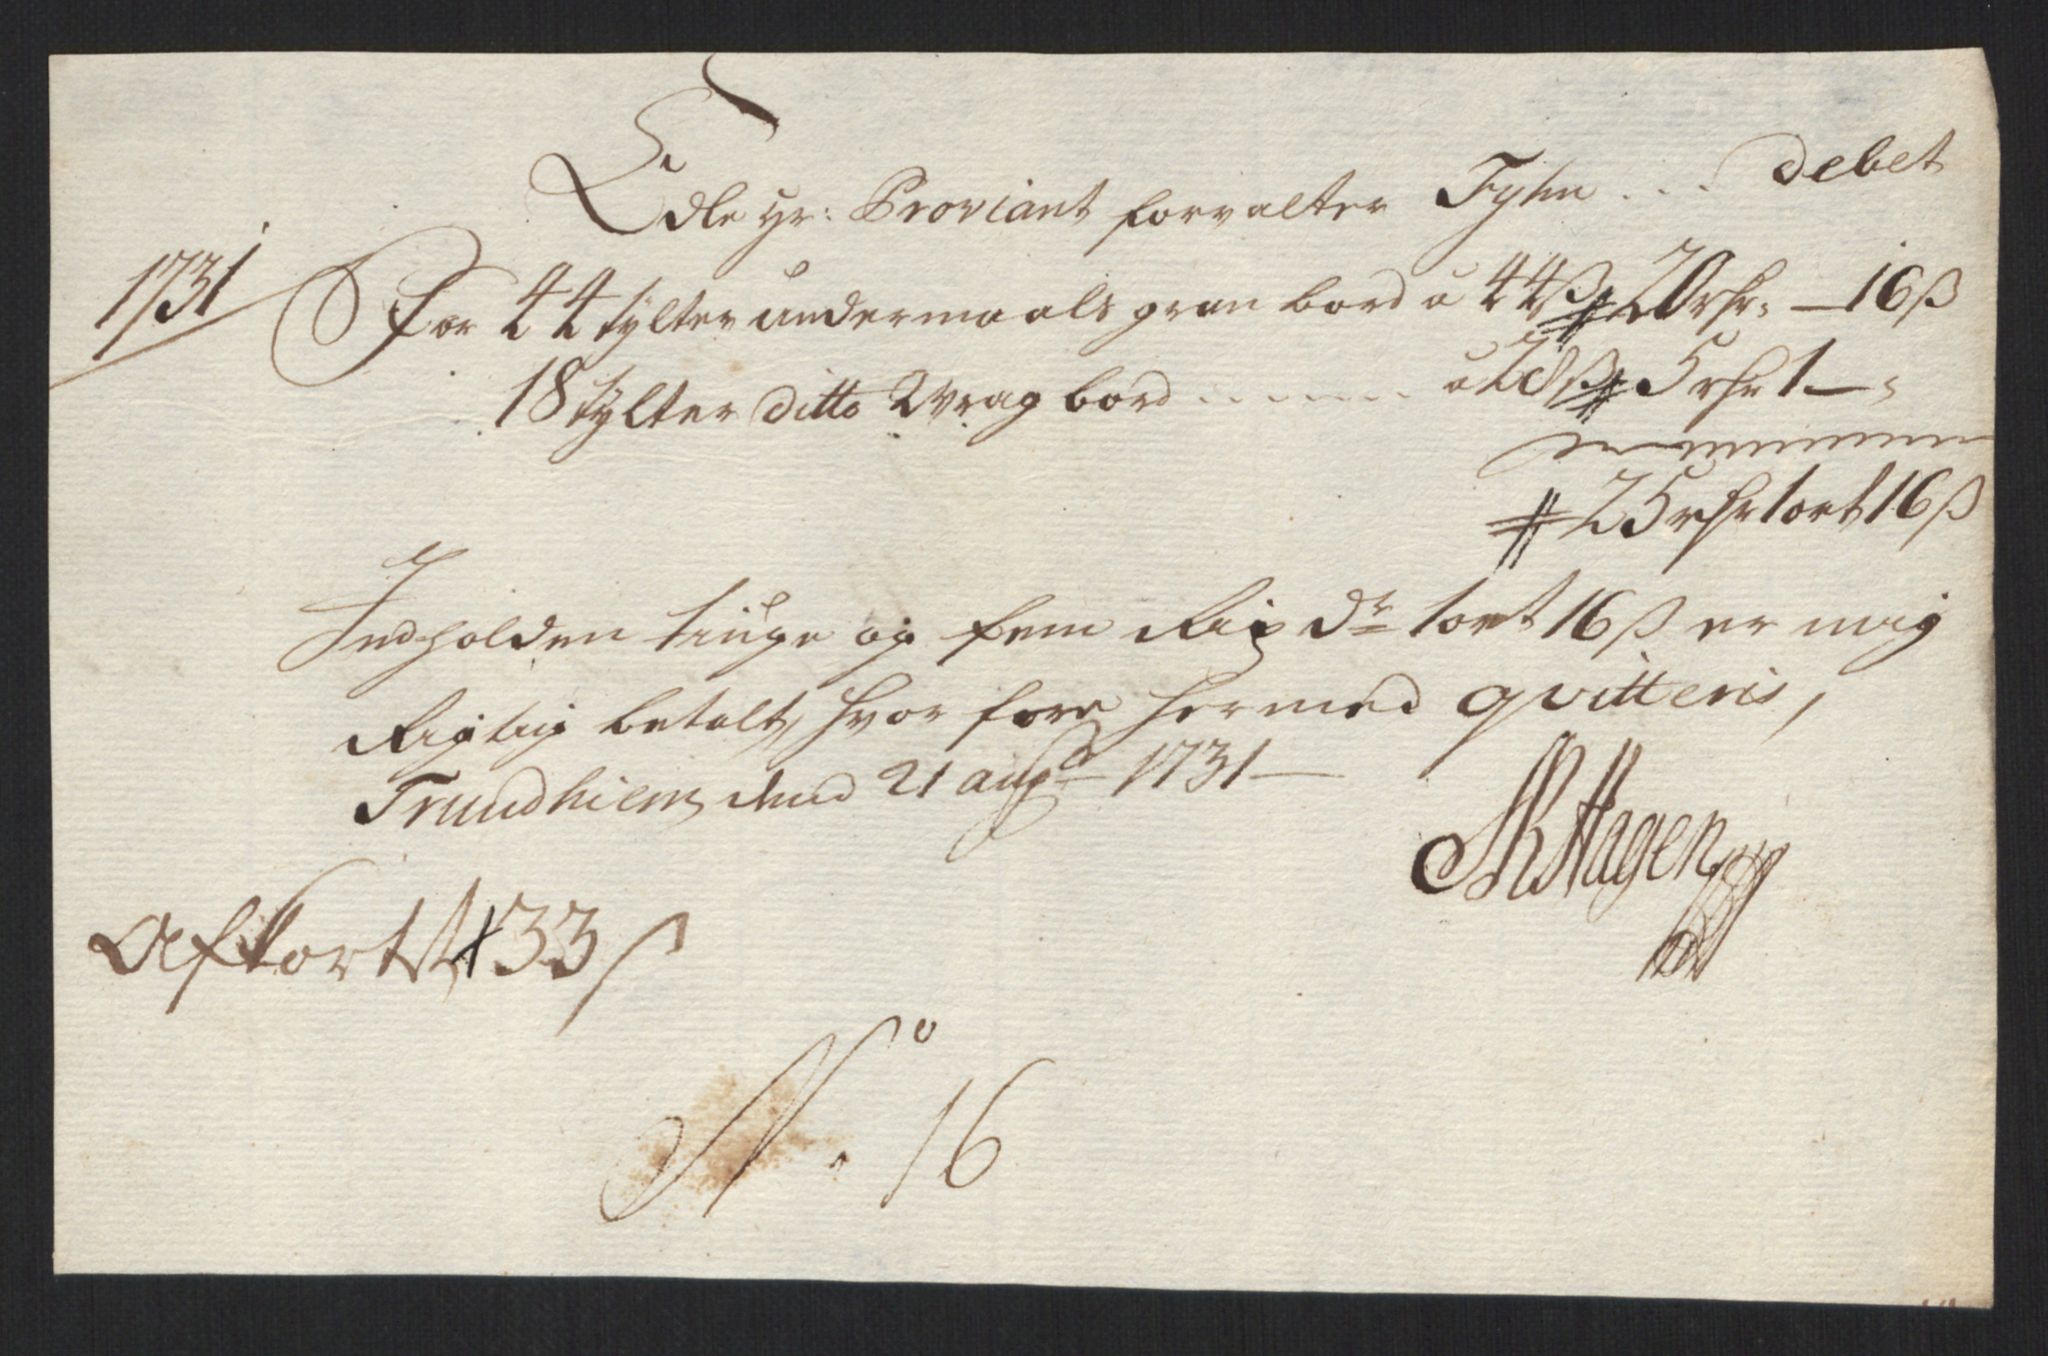 Edle Hr: Proviant forvalter Tyhn ... debet
1731 For 44 tylter undermaals gran bord a 44ß # 20 rhr: — 16ß
18 tylter ditto Wrag bord ........ a 28ß # 5 rhr 1 —
# 25 rhr 1 ort 16ß
Indholden tiuge og fem Rix dr 1 ort 16ß er mig
Rigtig betalt, hvor fore hermed qvitteris,
Trundhiem dend 21 augst 1731 —
Hagen
Afkort 33ß
No. 16